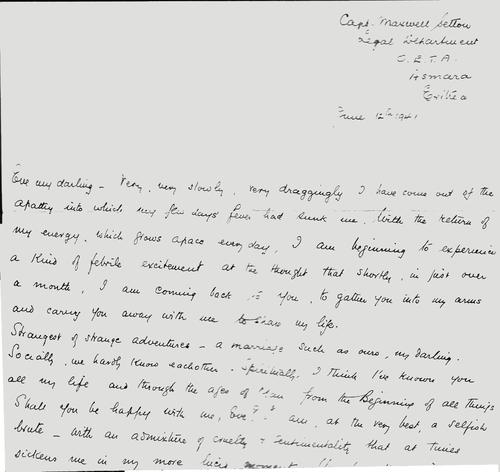 Capt. Maxwell Setton
Legal Department
O.E.T.A.
Asmara
Eritrea
June 12th 1941
Eve my darling - Very, very slowly, very draggingly I have come out of the
apathy into which my few days fever had sunk me. With the return of
my energy, which grows apace every day, I am beginning to experience
a kind of febrile excitement at the thought that shortly, in just over
a month, I am coming back to you, to gather you into my arms
and carry you away with me to share my life.
Strangest of strange adventures - a marriage such as ours, my darling.
Socially, we hardly know each other - Spiritually, I think I've known you
all my life and through the ages of from the Beginning of all things
Shall you be happy with me, Eve? I am, at the very best, a selfish
brute - with an admixture of cruelty & sentimentality that at times
sickens me in my more lucid moments